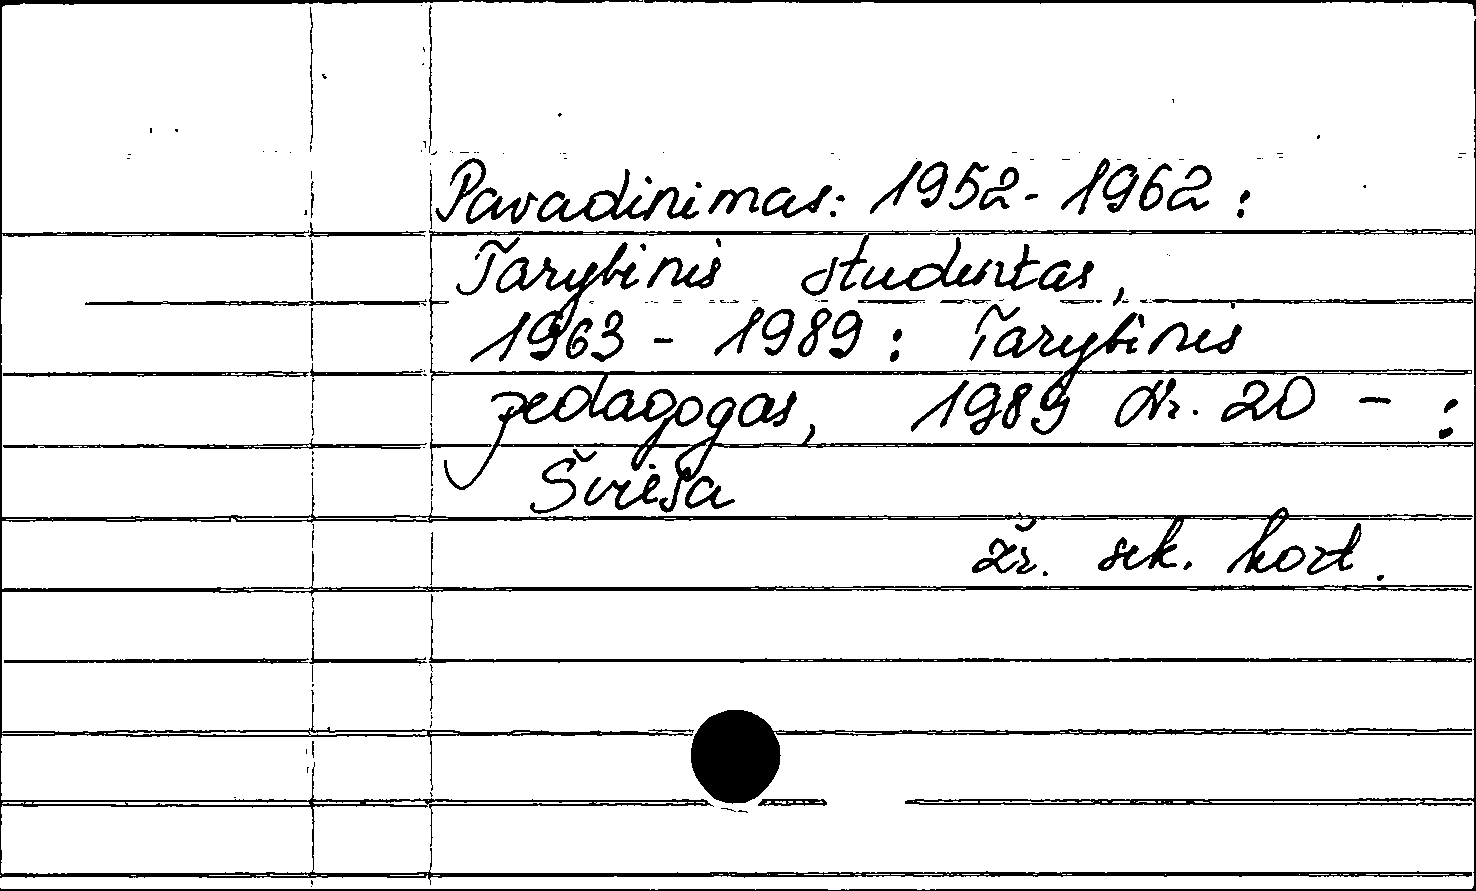 Pavadinimas: 1952-1962:
Tarybinis studentas,
1963 - 1989: Tarybinis
pedagogas, 1989 Nr. 20 - :
Šviesa
žr. sek. kort.